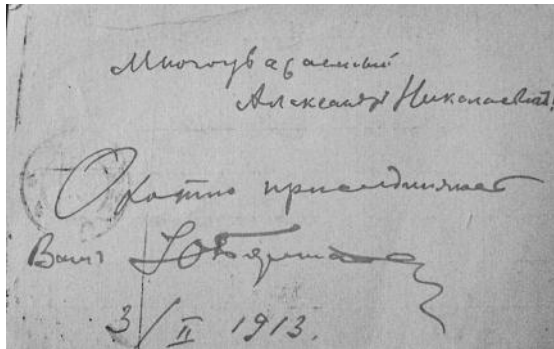 Многоуважаемый
Александръ Николаевичъ!
Охотно присоединяюсь
Вашъ
3/II 1913.